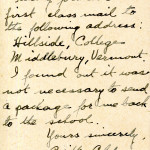 first class mail to
the following address:
Hillside, College
Middlebury, Vermont.
I found out it was
not necessary to send
a package for me back
to the school.
Yours sincerely,